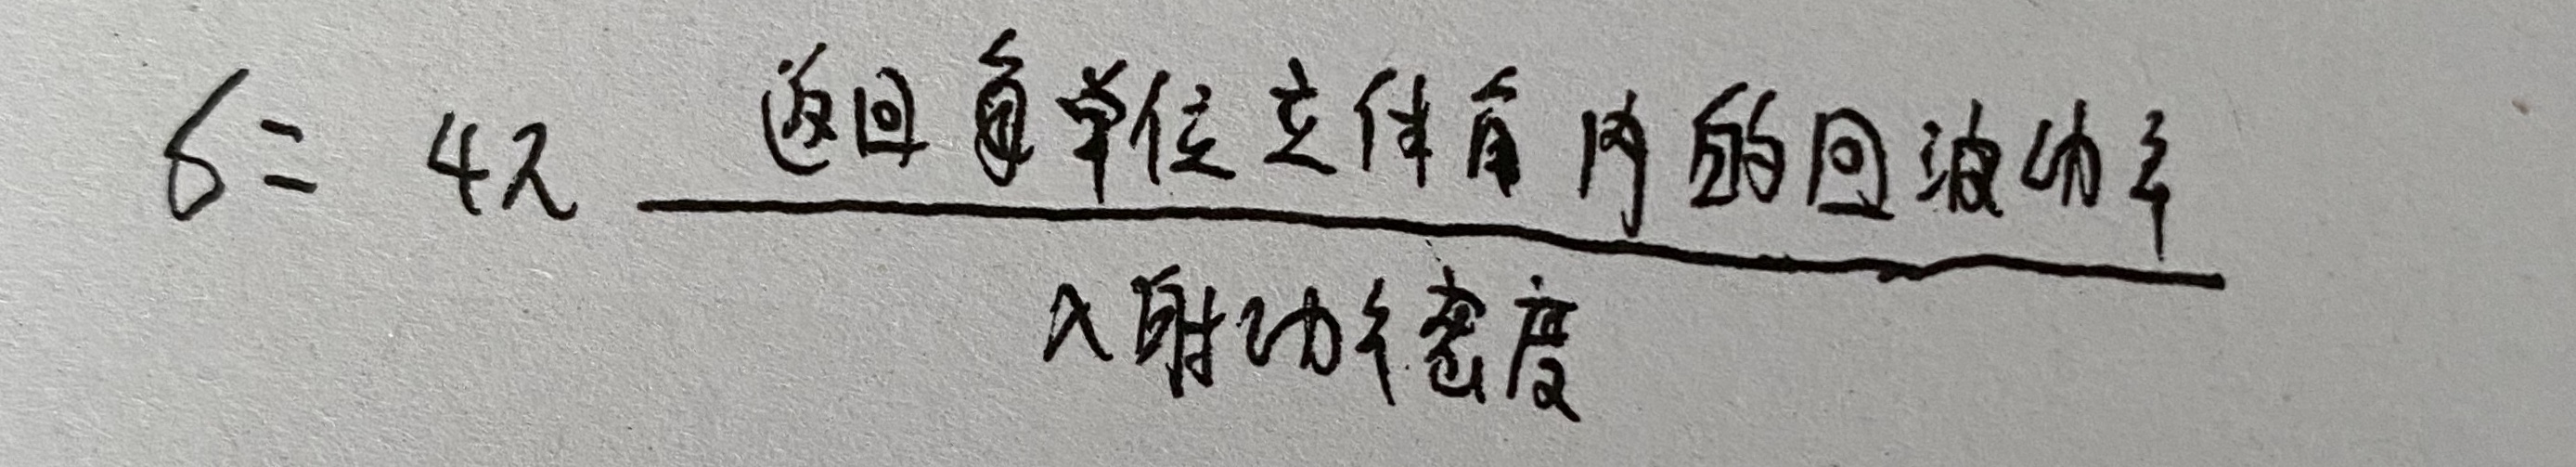 σ = 4π 返回每单位立体角内的回波功率
入射功率密度